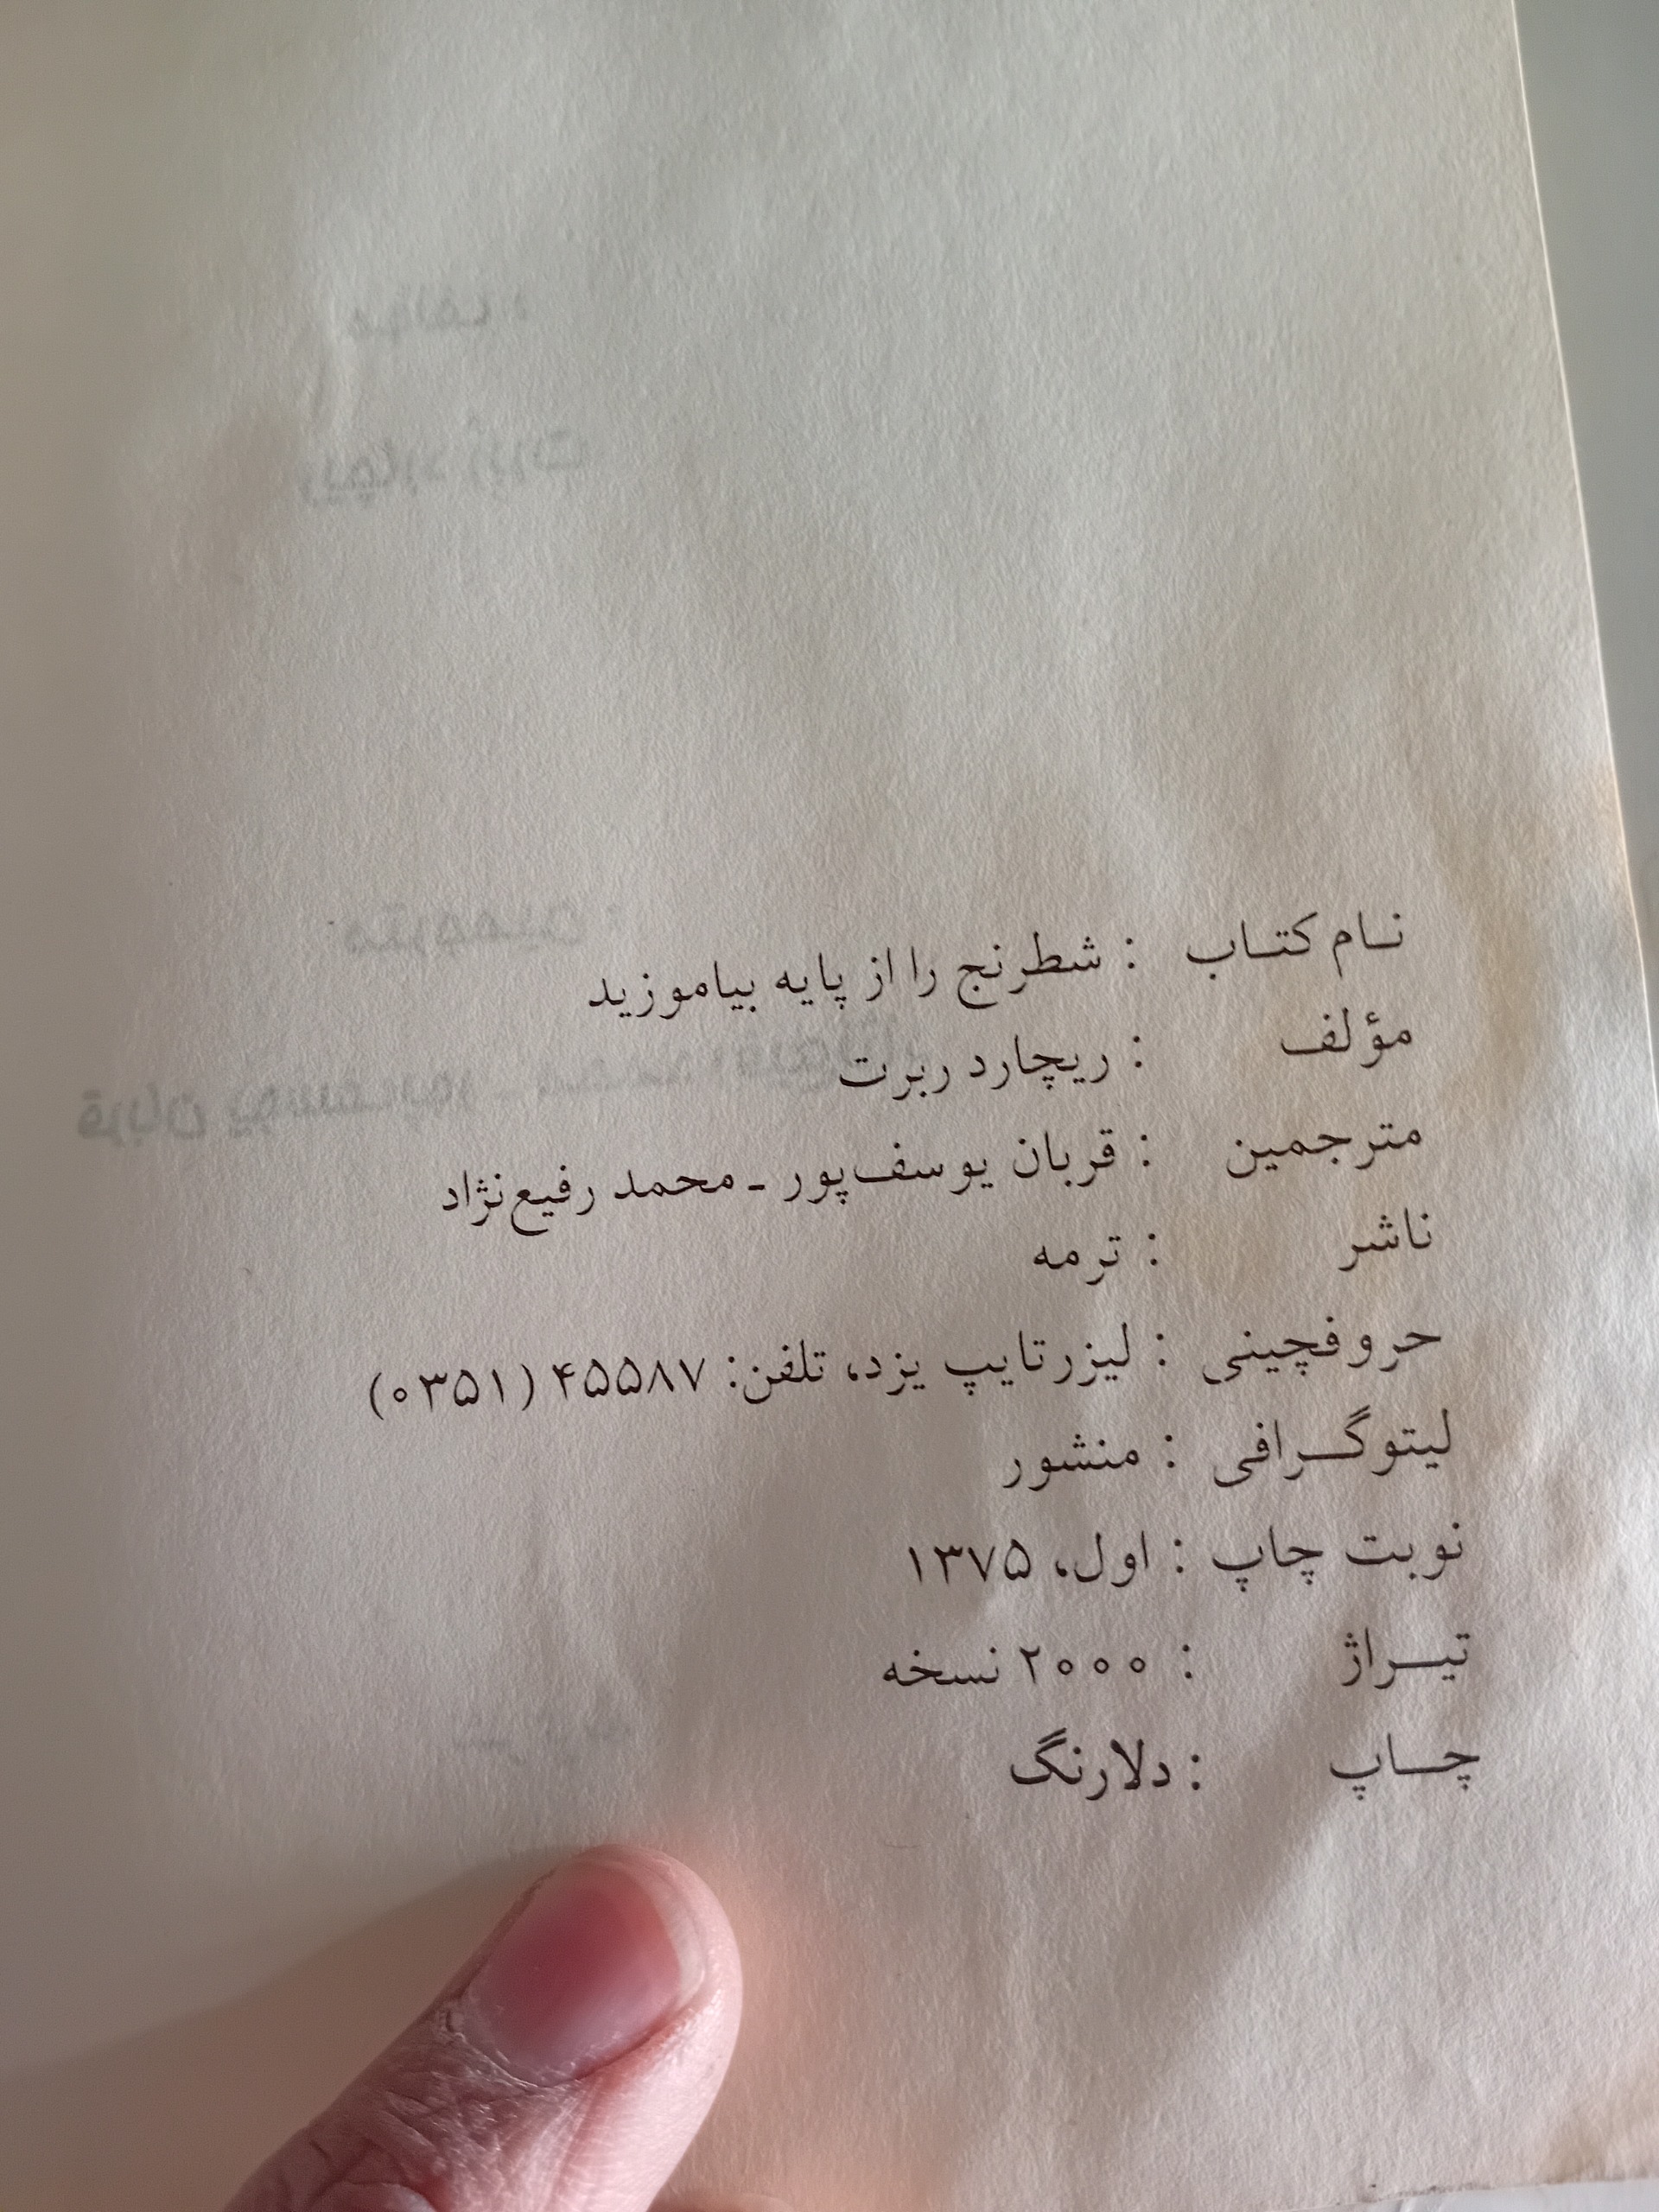 نام کتاب : شطرنج را از پایه بیاموزید
مؤلف : ریچارد ربرت
مترجمین : قربان یوسف‌پور ـ محمد رفیع‌نژاد
ناشر : ترمه
حروفچینی : لیزرتایپ یزد، تلفن: ۴۵۵۸۷ (۰۳۵۱)
لیتوگرافی : منشور
نوبت چاپ : اول، ۱۳۷۵
تیراژ : ۲۰۰۰ نسخه
چاپ : دلارنگ